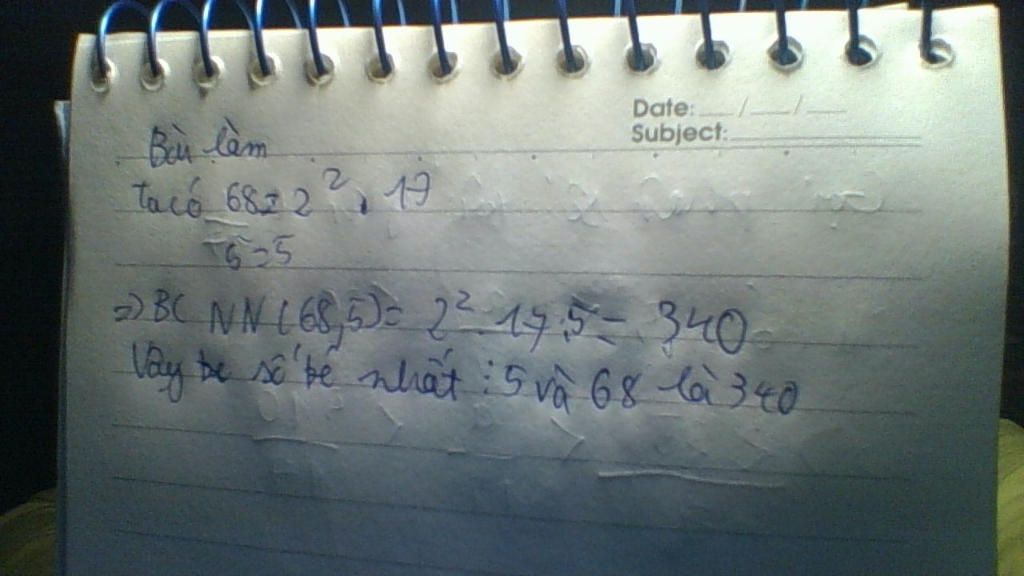 Date: __ / __ / __
Subject:
Bài làm
ta có 68 = 2² . 17
5 = 5
=> BC NN (68,5) = 2² . 17 . 5 = 340
Vậy số bé nhất : 5 và 68 là 340